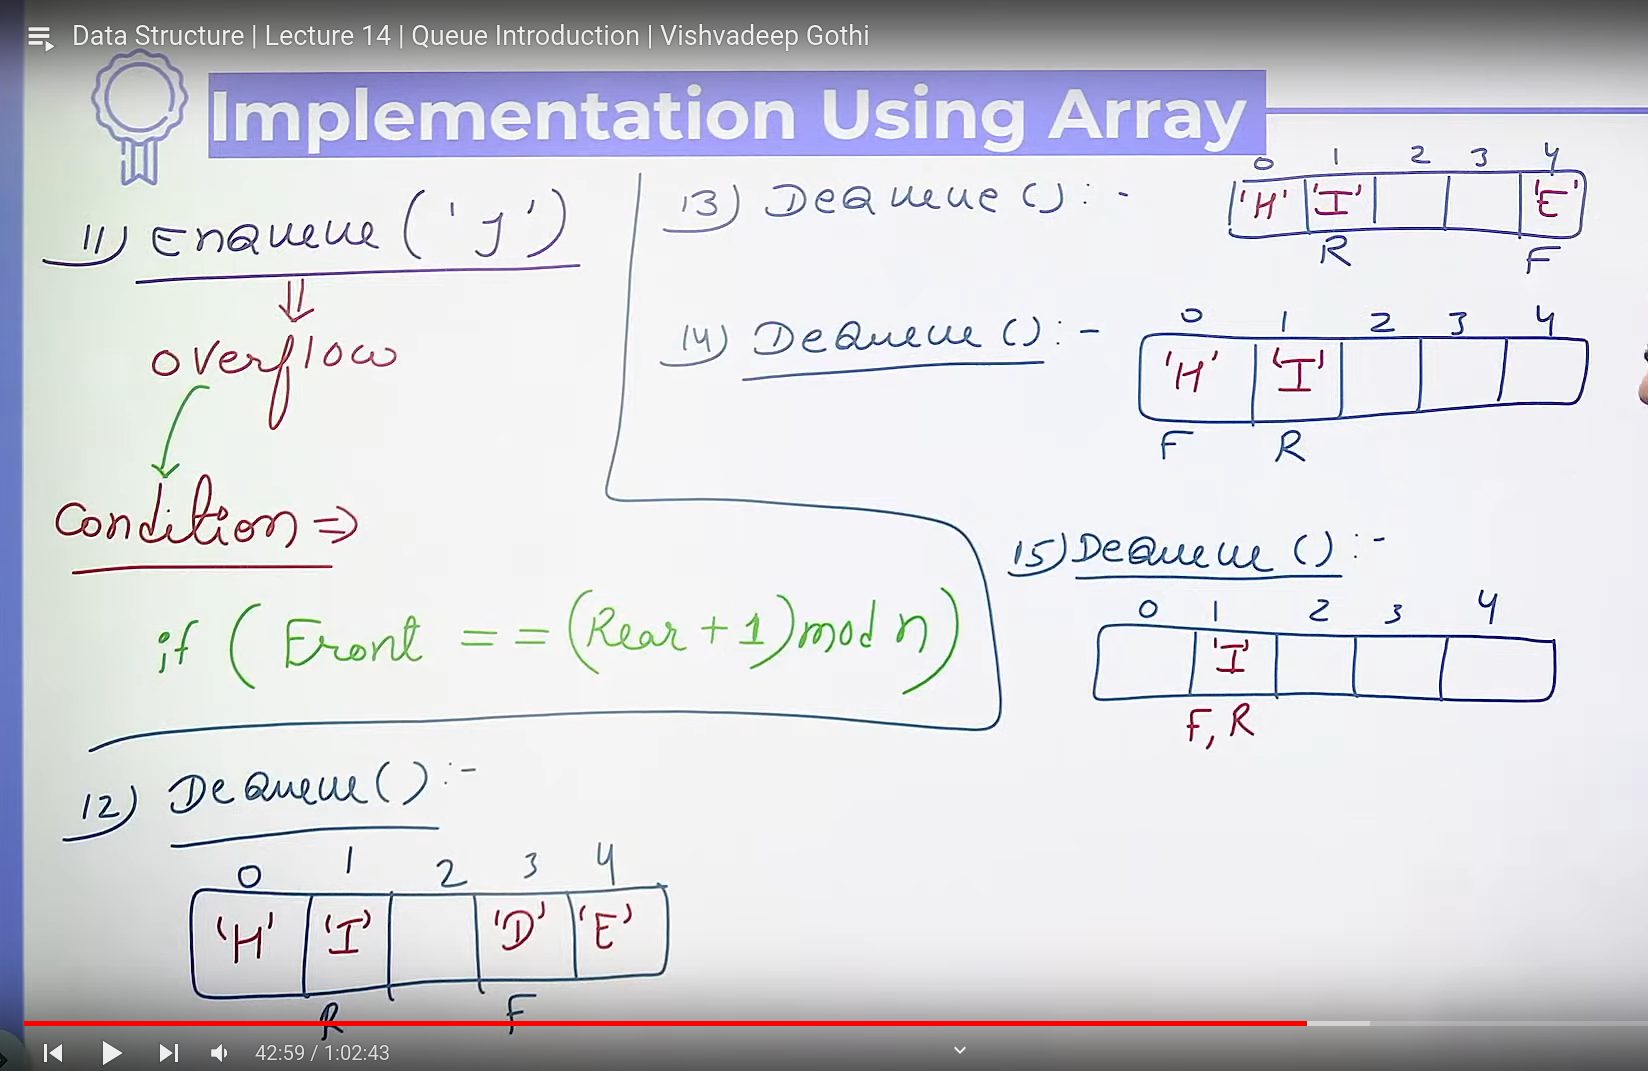 Data Structure | Lecture 14 | Queue Introduction | Vishvadeep Gothi
Implementation Using Array
11) Enqueue ('J')
⇓
overflow
Condition ⇒
if ( Front == (Rear + 1) mod n )
12) DeQueue () :-
0 1 2 3 4
'H' 'I' 'D' 'E'
R F
13) DeQueue () :-
0 1 2 3 4
'H' 'I' 'E'
R F
14) DeQueue () :-
0 1 2 3 4
'H' 'I'
F R
15) DeQueue () :-
0 1 2 3 4
'I'
F, R
42:59 / 1:02:43